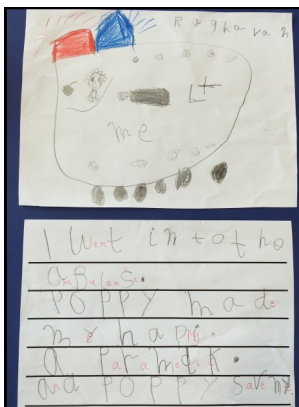 Raghavan
me
I Went in to the
ambulanse.
POPPY made
my happy.
a Paramedick.
and POPPY Save me.